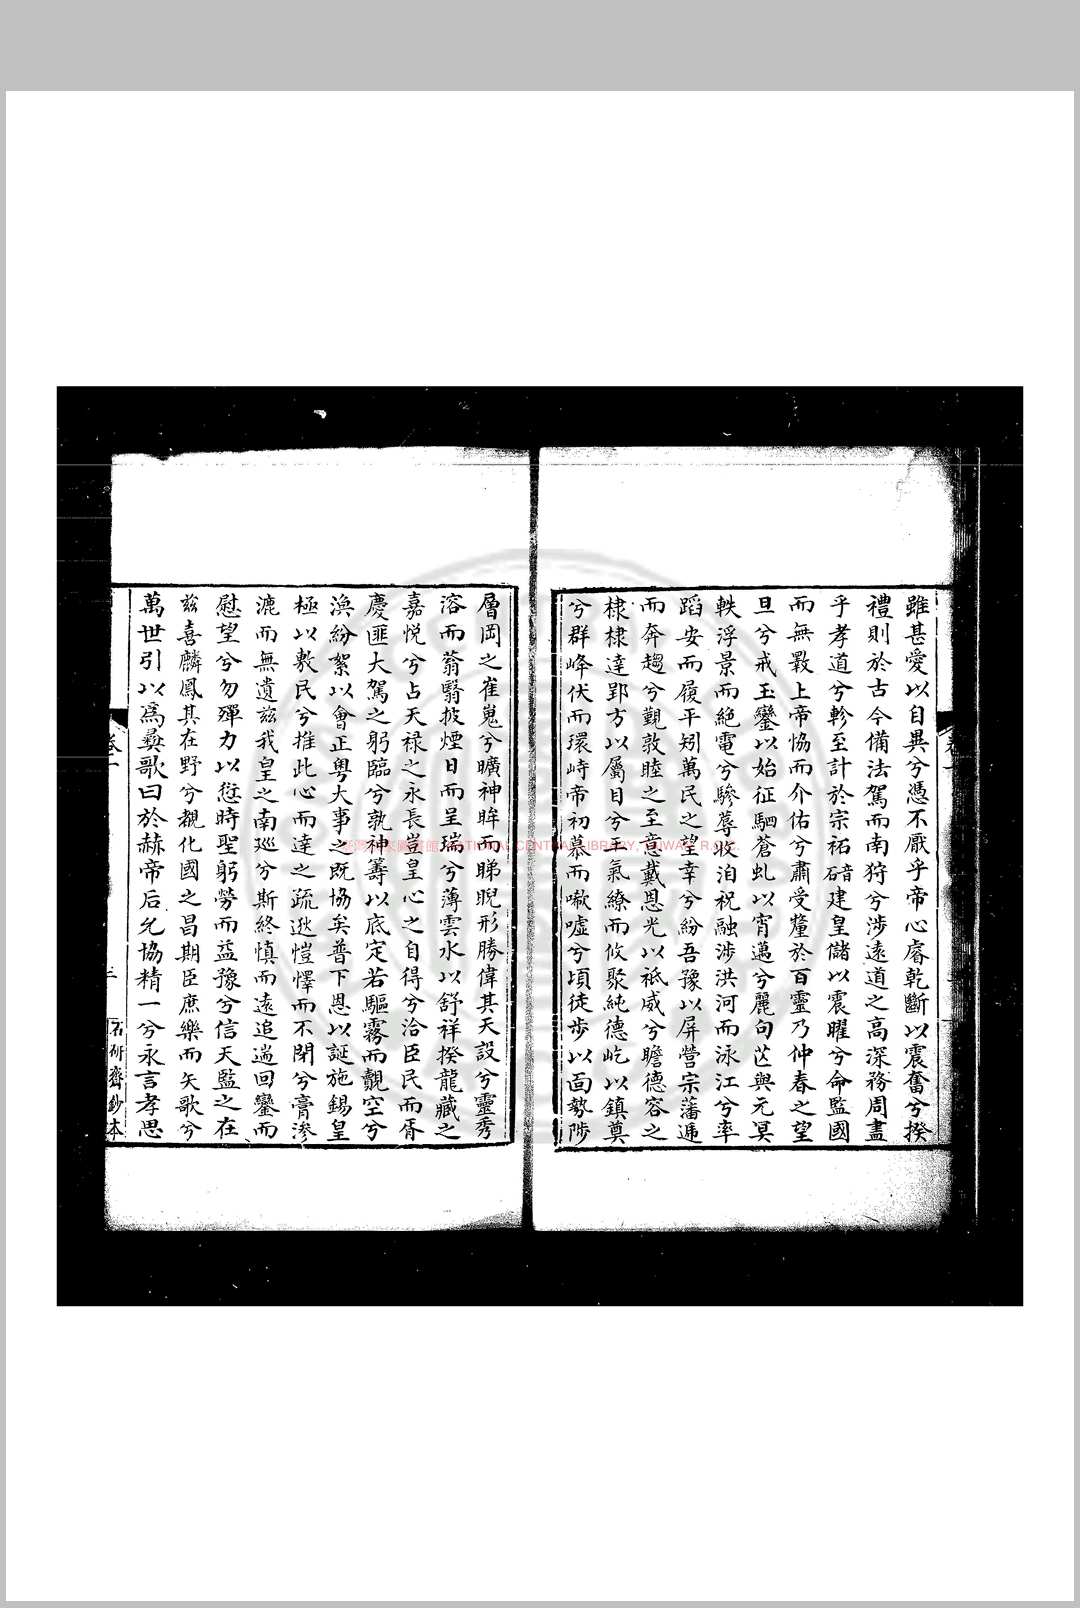 雖甚愛以自異兮憑不厭乎帝心睿乾斷以震奮兮揆
禮則於古今備法駕而南狩兮涉遠道之高深務周盡
乎孝道兮軫至計於宗祏碚建皇儲以震曜兮命監國
而無斁上帝恊而介佑兮肅受釐於百靈乃仲春之望
旦兮戒玉鑾以始征駟蒼虬以宵邁兮麗句芒與元冥
軼浮景而絕電兮驂蓐收洎祝融涉洪河而泳江兮率
蹈安而履平矧萬民之望幸兮紛吾豫以屏營宗藩逓
而奔趨兮觀敦睦之至意戴恩光以祇威兮瞻德容之
棣棣達郢方以屬目兮王氣繚而攸聚純德屹以鎮奠
兮群峰伏而環峙帝初慕而噭噓兮頃徒步以面勢陟
層岡之崔嵬兮曠神眸而睇睨形勝偉其天設兮靈秀
溶而蓊翳披煙日而呈瑞兮薄雲水以舒祥揆龍藏之
嘉悅兮占天禄之永長豈皇心之自得兮洽臣民而胥
慶匪大駕之躬臨兮孰神籌以底定若驅霧而覿空兮
渙紛絮以會正粤大事之既協矣普下恩以誕施錫皇
極以敷民兮推此心而達之疏逖愷懌而不閉兮膏滲
漉而無遺兹我皇之南巡兮斯終慎而遠追遄回鑾而
慰望兮勿殫力以愆時聖躬勞而益豫兮信天監之在
兹喜麟鳳其在野兮覩化國之昌期臣庶樂而矢歌兮
萬世引以爲彛歌曰於赫帝后允協精一兮永言孝思
卷一
三
石研齋鈔本